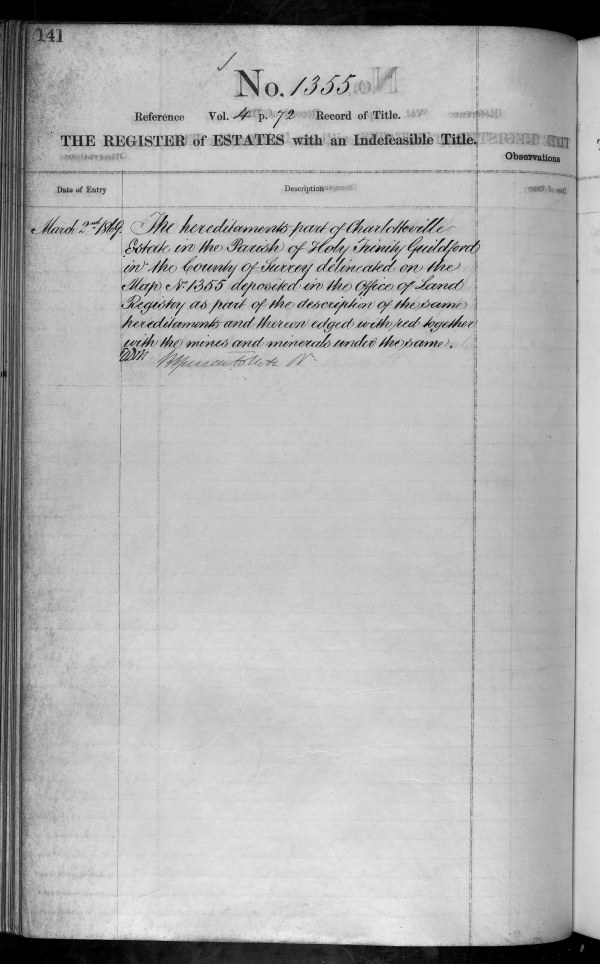 141
No. 1355
Reference Vol. 4 p. 72 Record of Title.
THE REGISTER of ESTATES with an Indefeasible Title.
Observations
Date of Entry Description
March 2nd 1869. The hereditaments part of Charlotteville
Estate in the Parish of Holy Trinity Guildford
in the County of Surrey delineated on the
Map No. 1355 deposited in the Office of Land
Registry as part of the description of the same
hereditaments and thereon edged with red together
with the mines and minerals under the same.